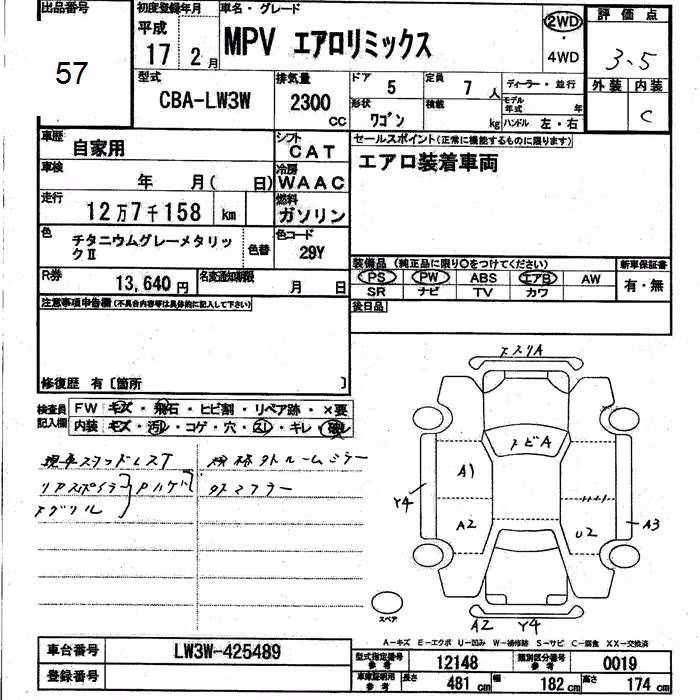 出品番号
57
初度登録年月
平成
17 2 月
車名・グレード
MPV エアロリミックス
2WD
・
4WD
評価点
3.5
外装 内装
C
型式
CBA-LW3W
排気量
2300
CC
ドア 5
定員 7 人
ディーラー・並行
形状 ワゴン
積載 kg
モデル年式 年
ハンドル 左・右
車歴
自家用
シフト
CAT
車検
年 月( 日)
冷房
WAAC
走行
12万7千158 km
燃料
ガソリン
色
チタニウムグレーメタリックⅡ
色替
色コード
29Y
R券
13,640円
名変通知期限
月 日
セールスポイント(正常に機能するものに限ります)
エアロ装着車両
装備品 (純正品に限り○をつけてください)
新車保証書
PS PW ABS エアB AW
SR ナビ TV カワ
有・無
後日品
注意事項申告欄(不具合内容等は具体的に記入して下さい)
修復歴 有〔箇所 〕
検査員
記入欄
FW キズ・飛石・ヒビ割・リペア跡・×要
内装 キズ・汚レ・コゲ・穴・スレ・キレ・破レ
現車スタッドレスT
リアスポイラ
Fグリル
Pハゲ
規格外ルームミラー
外マフラー
スリA
トビA
A1
A2
Y4
A3
U2
A2 Y4
スペア
A−キズ E−エクボ U−凹み W−補修跡 S−サビ C−腐食 XX−交換済
車台番号
LW3W-425489
登録番号
型式指定番号
参考
12148
類別区分番号
参考
0019
車庫証明用
参考
長さ 481 cm
幅 182 cm
高さ 174 cm